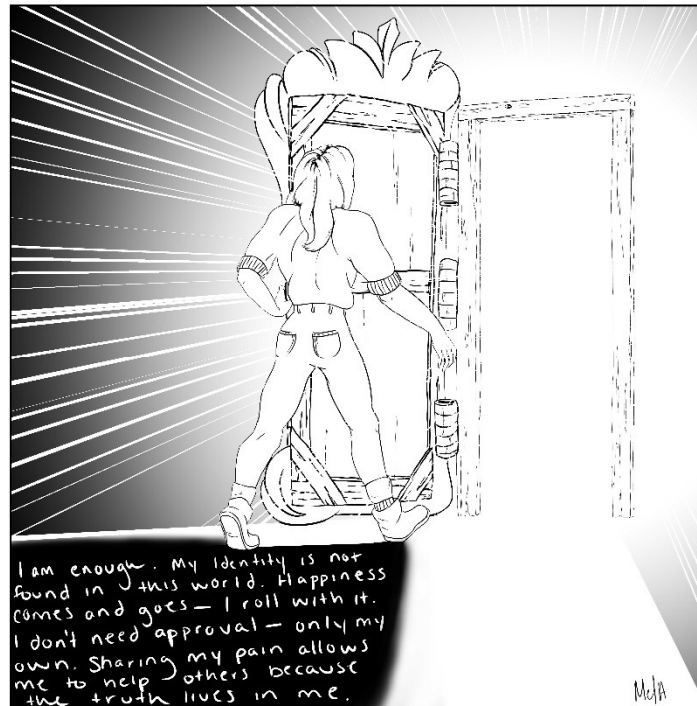 I am enough. My Identity is not
found in this world. Happiness
comes and goes — I roll with it.
I don't need approval — only my
own. Sharing my pain allows
me to help others because
the truth lives in me.